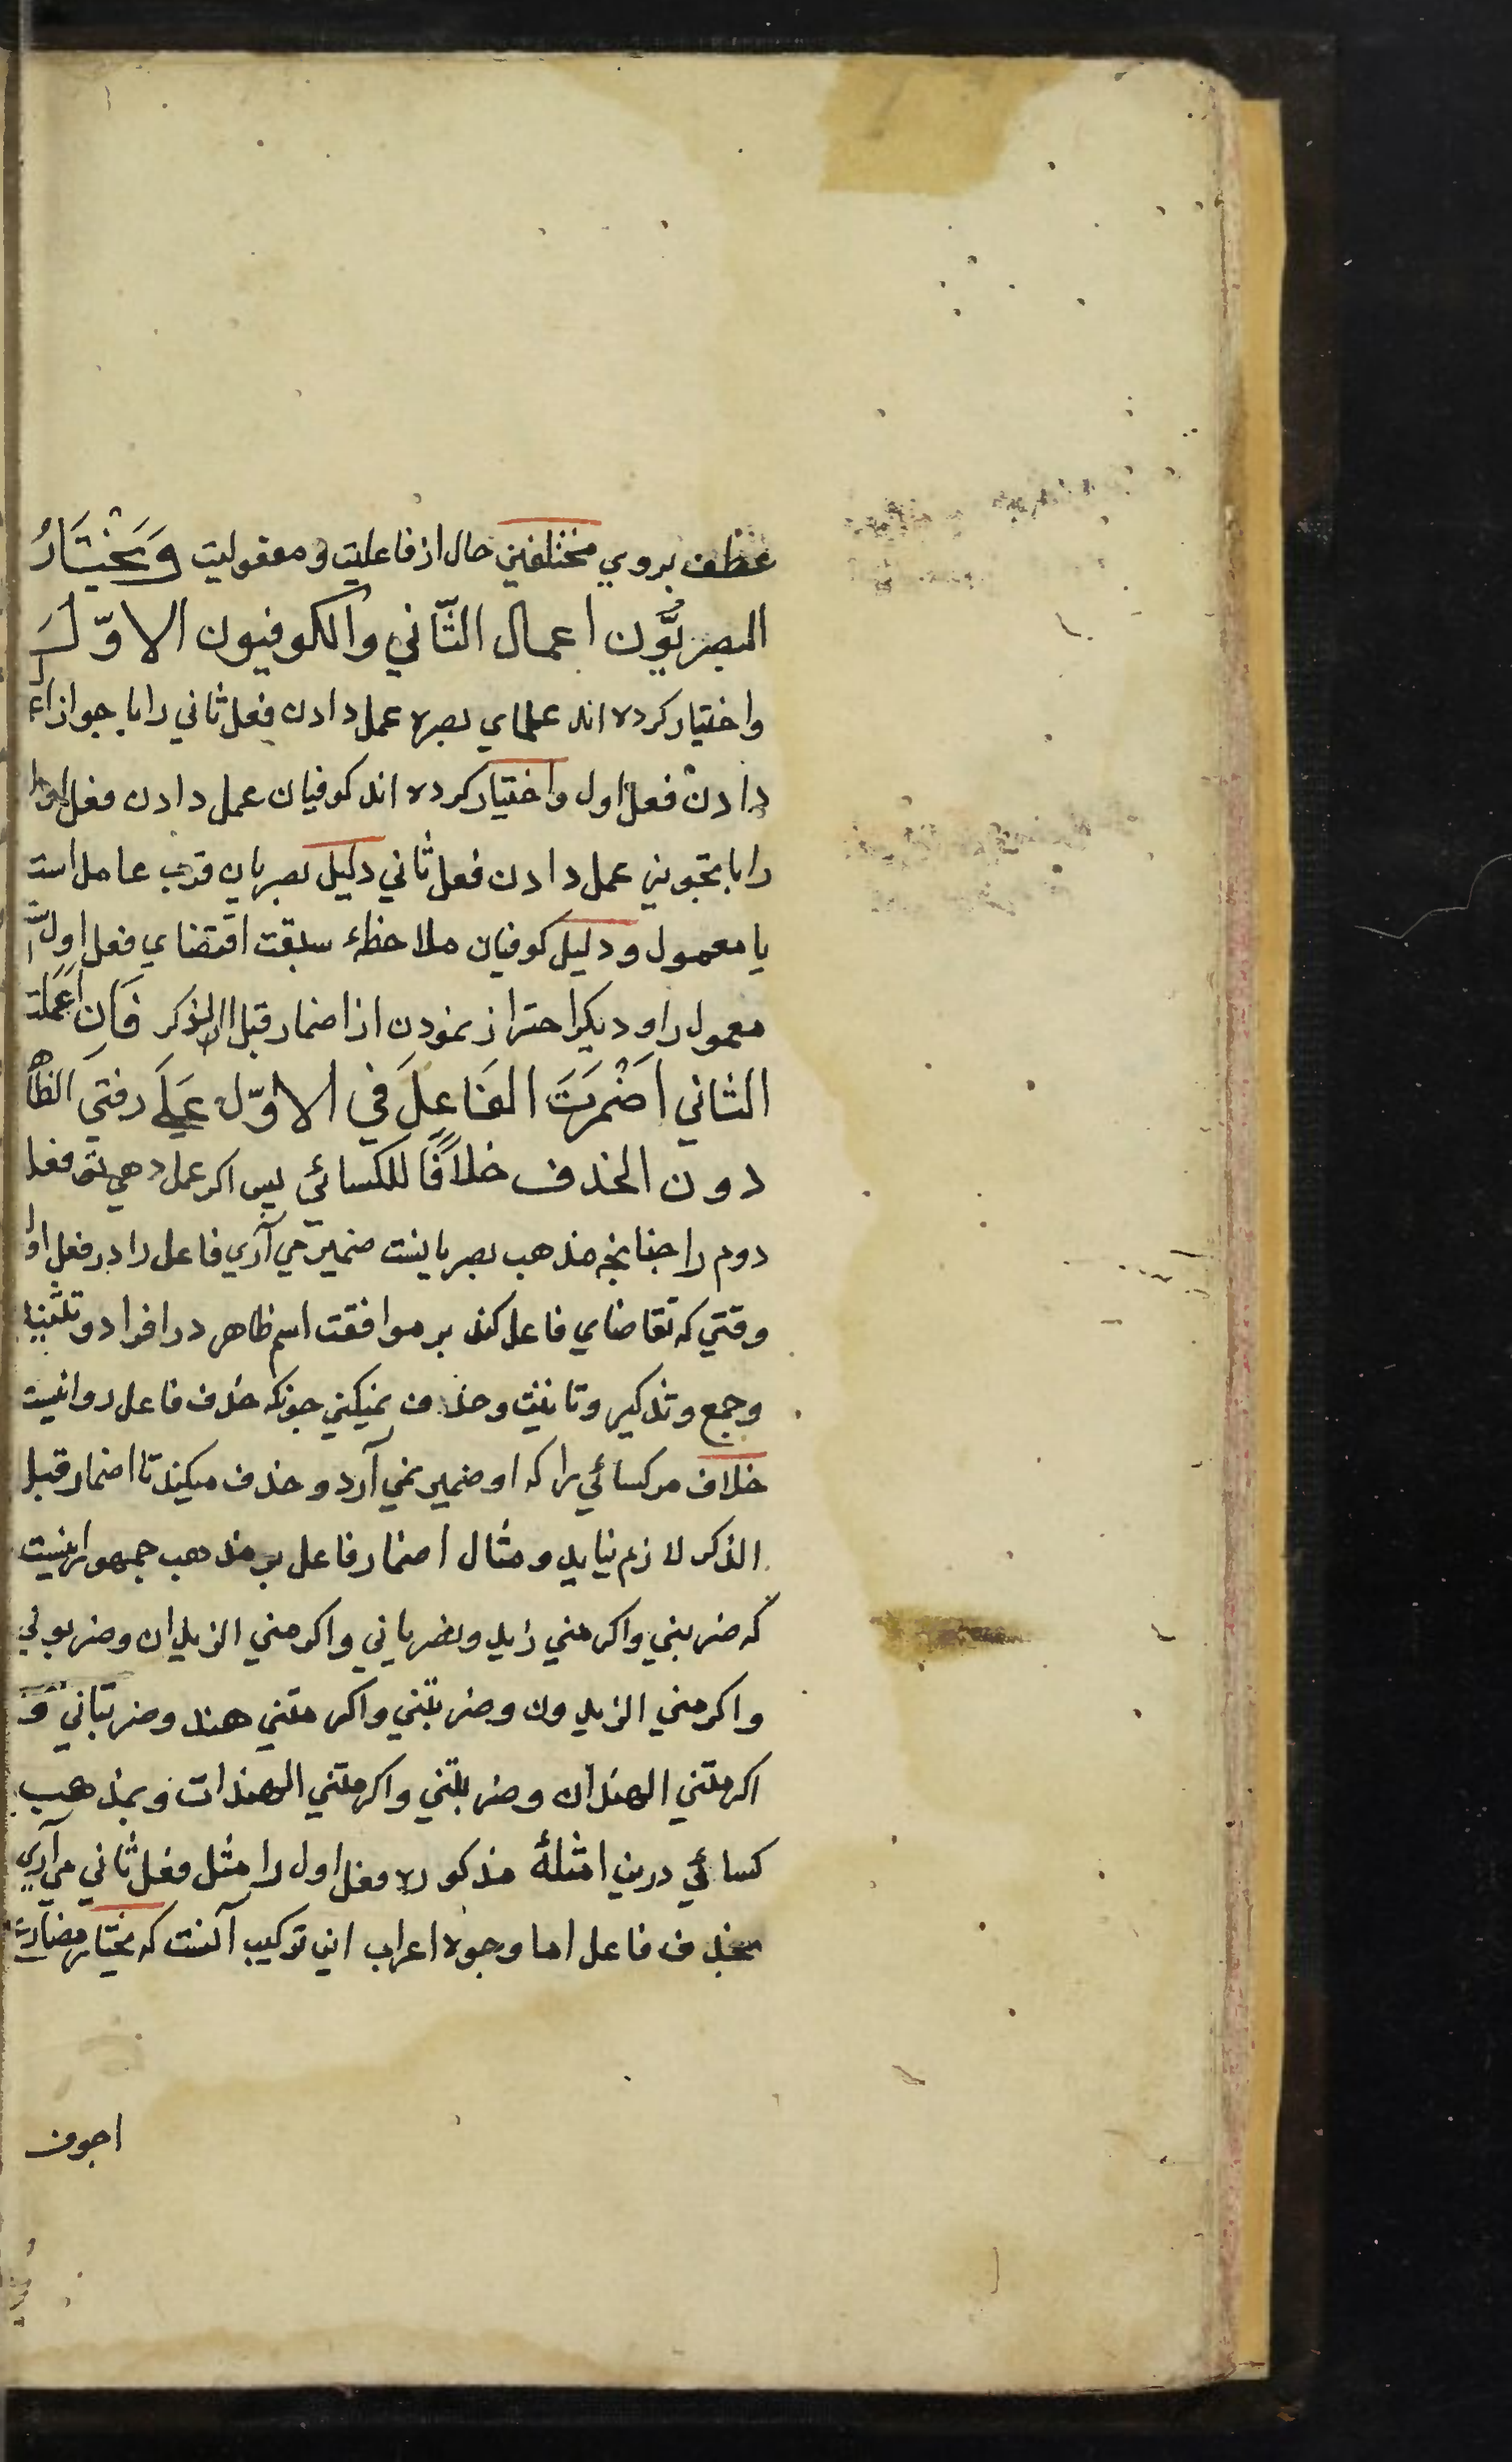 عطف بروي مختلفين حال از فاعليت و مفعوليت وَيَخْتَارُ
البصريُّون اعمال الثَّاني والكوفيون الاوّلَ
واختيار كرده اند علماي بصره عمل دادن فعل ثاني را با جواز اع
دادن فعل اول واختيار كرده اند كوفيان عمل دادن فعل اول
را با تجويز عمل دادن فعل ثاني دليل بصريان قرب عامل است
با معمول و دليل كوفيان ملاحظهٔ سبقت اقتضاي فعل اول است
معمول را و ديكر احتراز نمودن از اضمار قبل الذكر فَاِن اَعْمَلتَ
الثاني اَضْمَرتَ الفَاعِلَ في الاوّل عَلَى وفقِ الظاه
دون الحذف خلافًا للكسائي پس اكر عمل دهي تو فعل
دوم را چنانچه مذهب بصريانست ضمير مي آري فاعل را در فعل اول
وقتي كه تقاضاي فاعل كند بر موافقت اسم ظاهر در افراد و تثنيه
وجمع و تذكير و تانيث و حذف نميكني چونكه حذف فاعل روا نيست
خلاف مر كسائي را كه او ضمير نمي آرد و حذف ميكند تا اضمار قبل
الذكر لازم نيايد و مثال اضمار فاعل بر مذهب جمهور اينست
كه ضربني واكرمني زيد وضرباني واكرمني الزيدان وضربوني
واكرمني الزيدون وضربتني واكرمتني هند وضربتاني و
اكرمتني الهندان وضربنني واكرمتني الهندات و بمذهب
كسائي درين امثلهٔ مذكوره فعل اول را مثل فعل ثاني مي آري
بحذف فاعل اما وجوه اعراب اين تركيب آنست كه يختار مضارع
اجوف